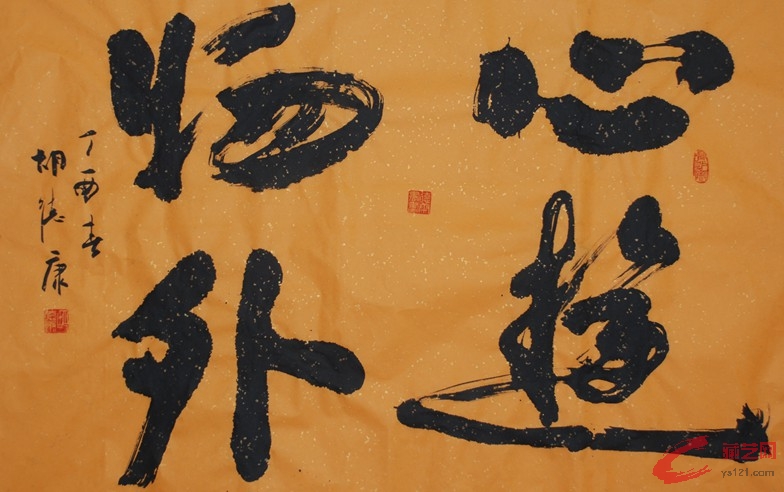 心游
物外
丁酉春
胡德康
藏艺网
ys121.com